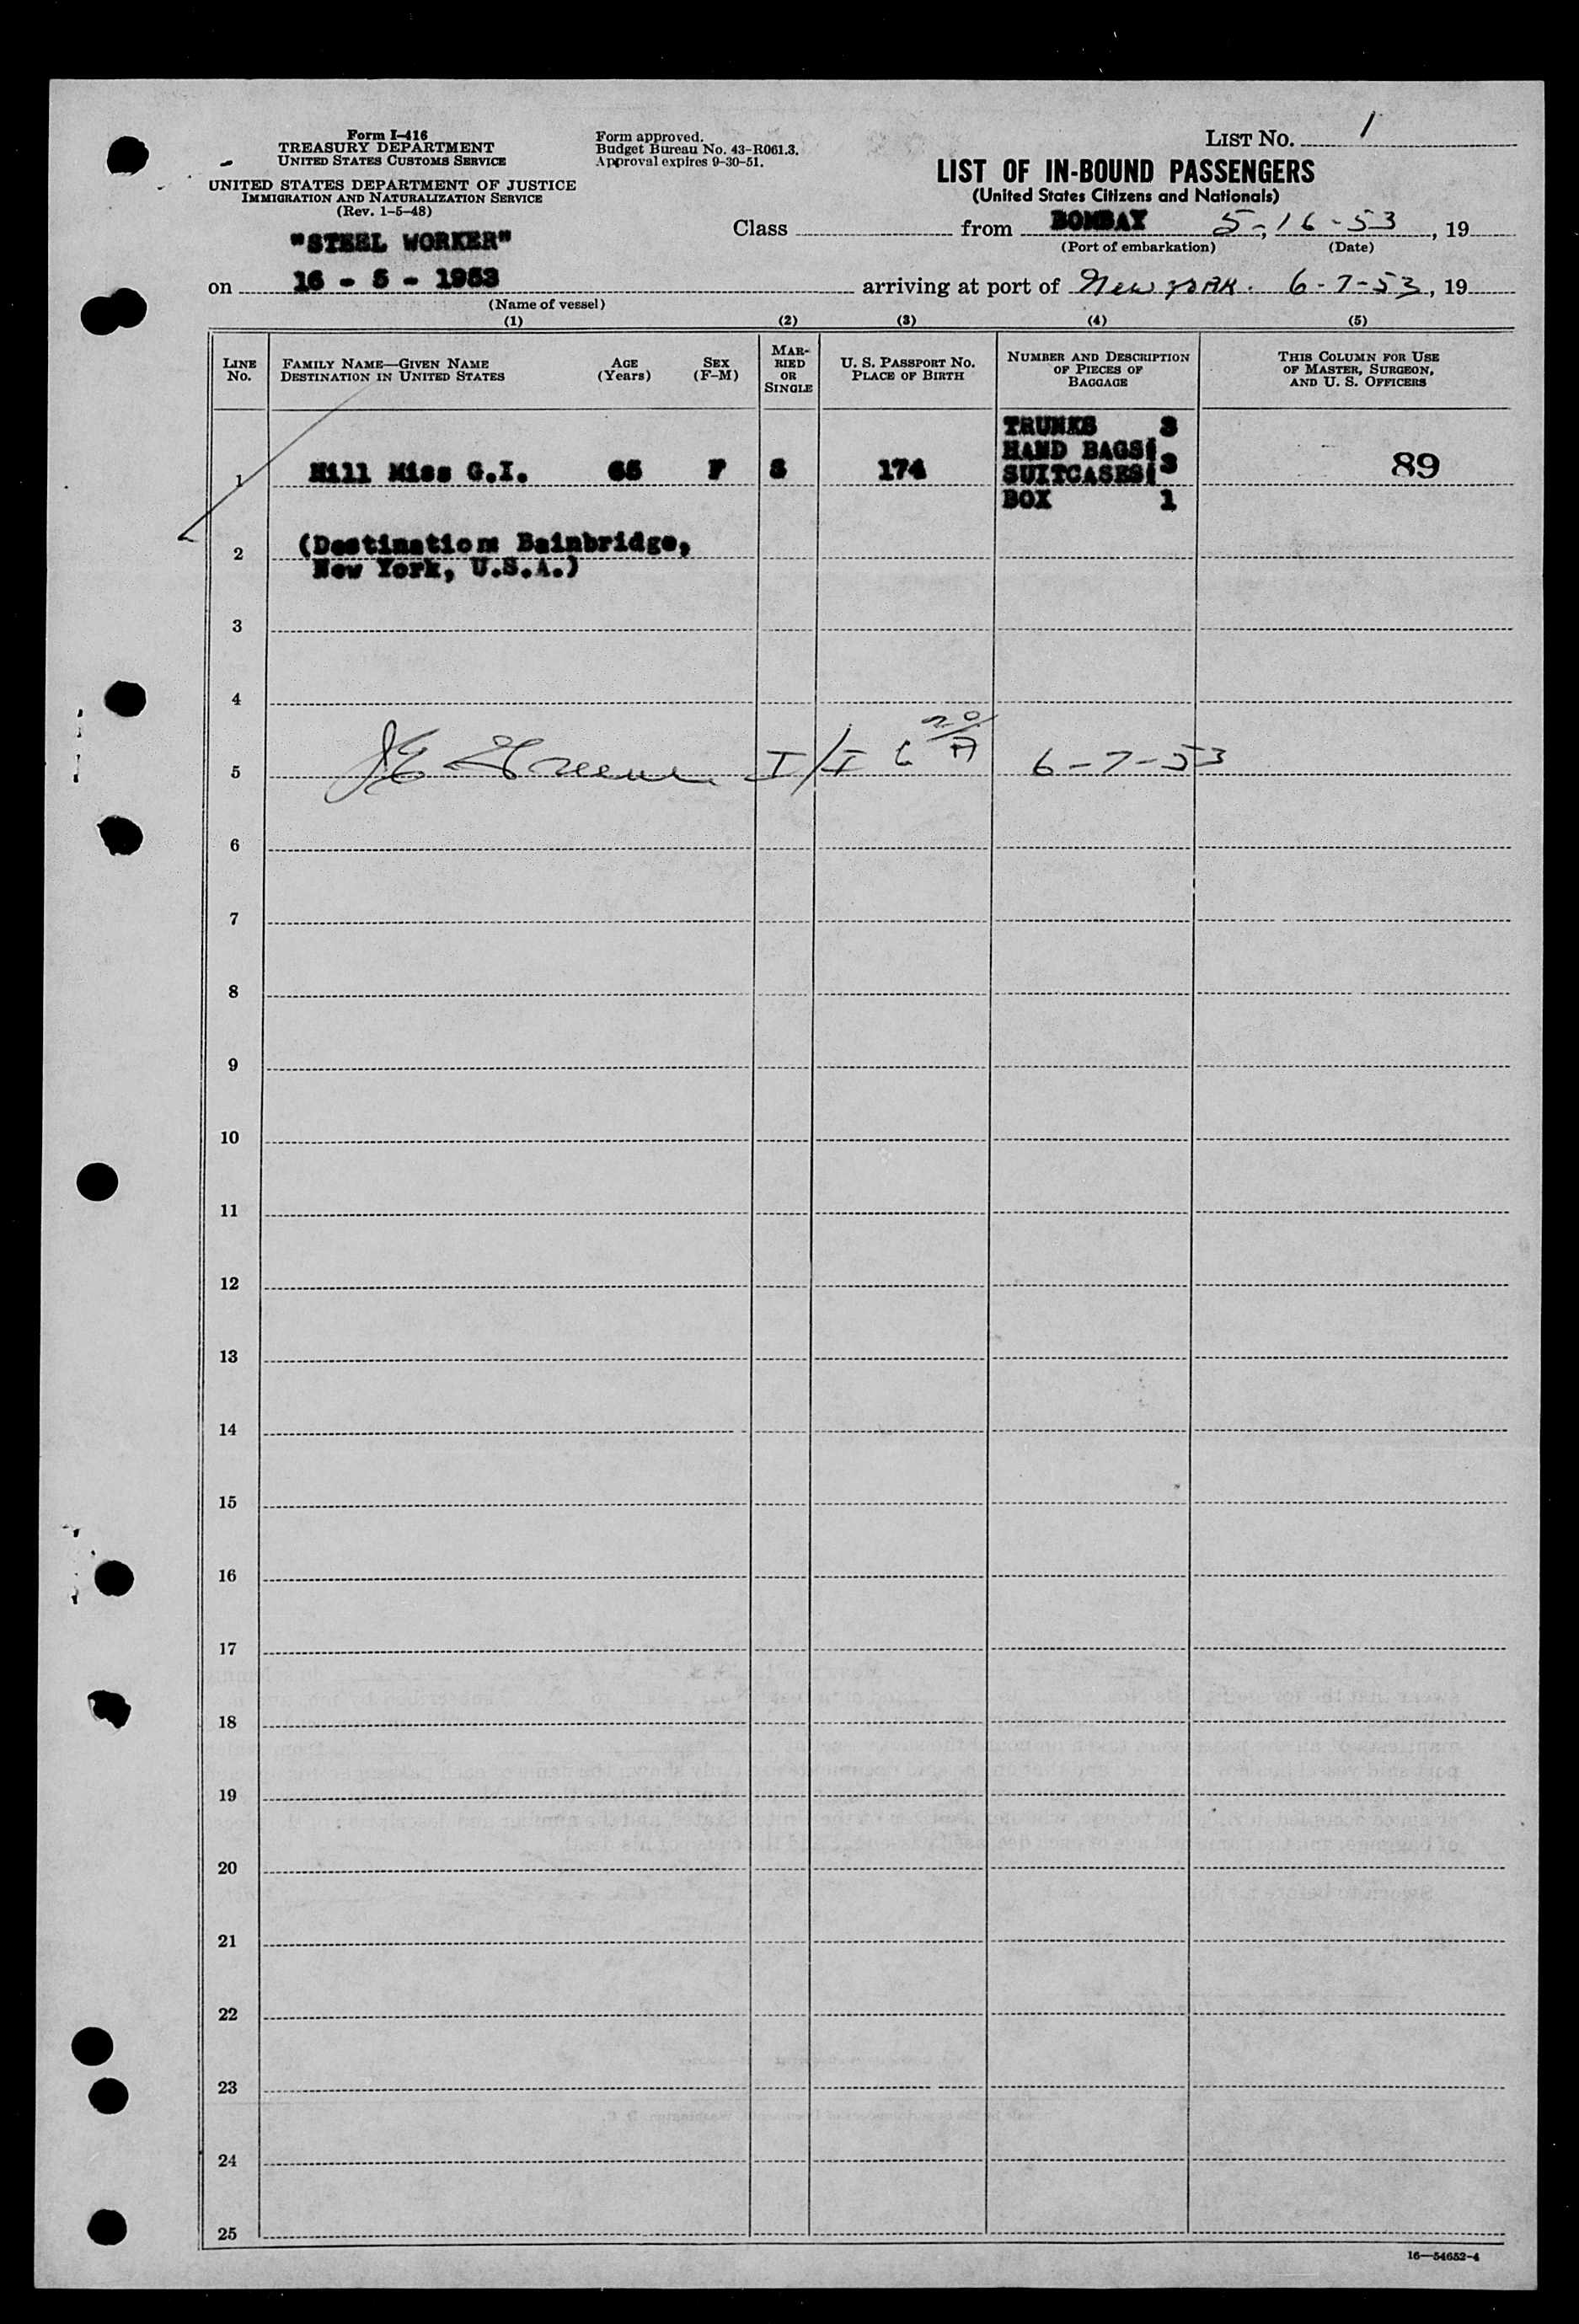 Form I-416
TREASURY DEPARTMENT
UNITED STATES CUSTOMS SERVICE
UNITED STATES DEPARTMENT OF JUSTICE
IMMIGRATION AND NATURALIZATION SERVICE
(Rev. 1-5-48)
Form approved.
Budget Bureau No. 43-R061.3.
Approval expires 9-30-51.
LIST NO. 1
LIST OF IN-BOUND PASSENGERS
(United States Citizens and Nationals)
Class from BOMBAY 5-, 16-53, 19
(Port of embarkation) (Date)
"STEEL WORKER"
on 16 - 5 - 1953 arriving at port of New York. 6-7-53, 19
(Name of vessel)
(1) (2) (3) (4) (5)
LINE NO.
FAMILY NAME—GIVEN NAME
DESTINATION IN UNITED STATES
AGE
(Years)
SEX
(F-M)
MAR-
RIED
OR
SINGLE
U. S. PASSPORT NO.
PLACE OF BIRTH
NUMBER AND DESCRIPTION
OF PIECES OF
BAGGAGE
THIS COLUMN FOR USE
OF MASTER, SURGEON,
AND U. S. OFFICERS
TRUNKS 3
HAND BAGS
1 Hill Miss G.I. 65 F S 174 SUITCASES 3 89
BOX 1
2 (Destination: Bainbridge,
New York, U.S.A.)
3
4
5 I/I 6-7-53
6
7
8
9
10
11
12
13
14
15
16
17
18
19
20
21
22
23
24
25
16—54652-4